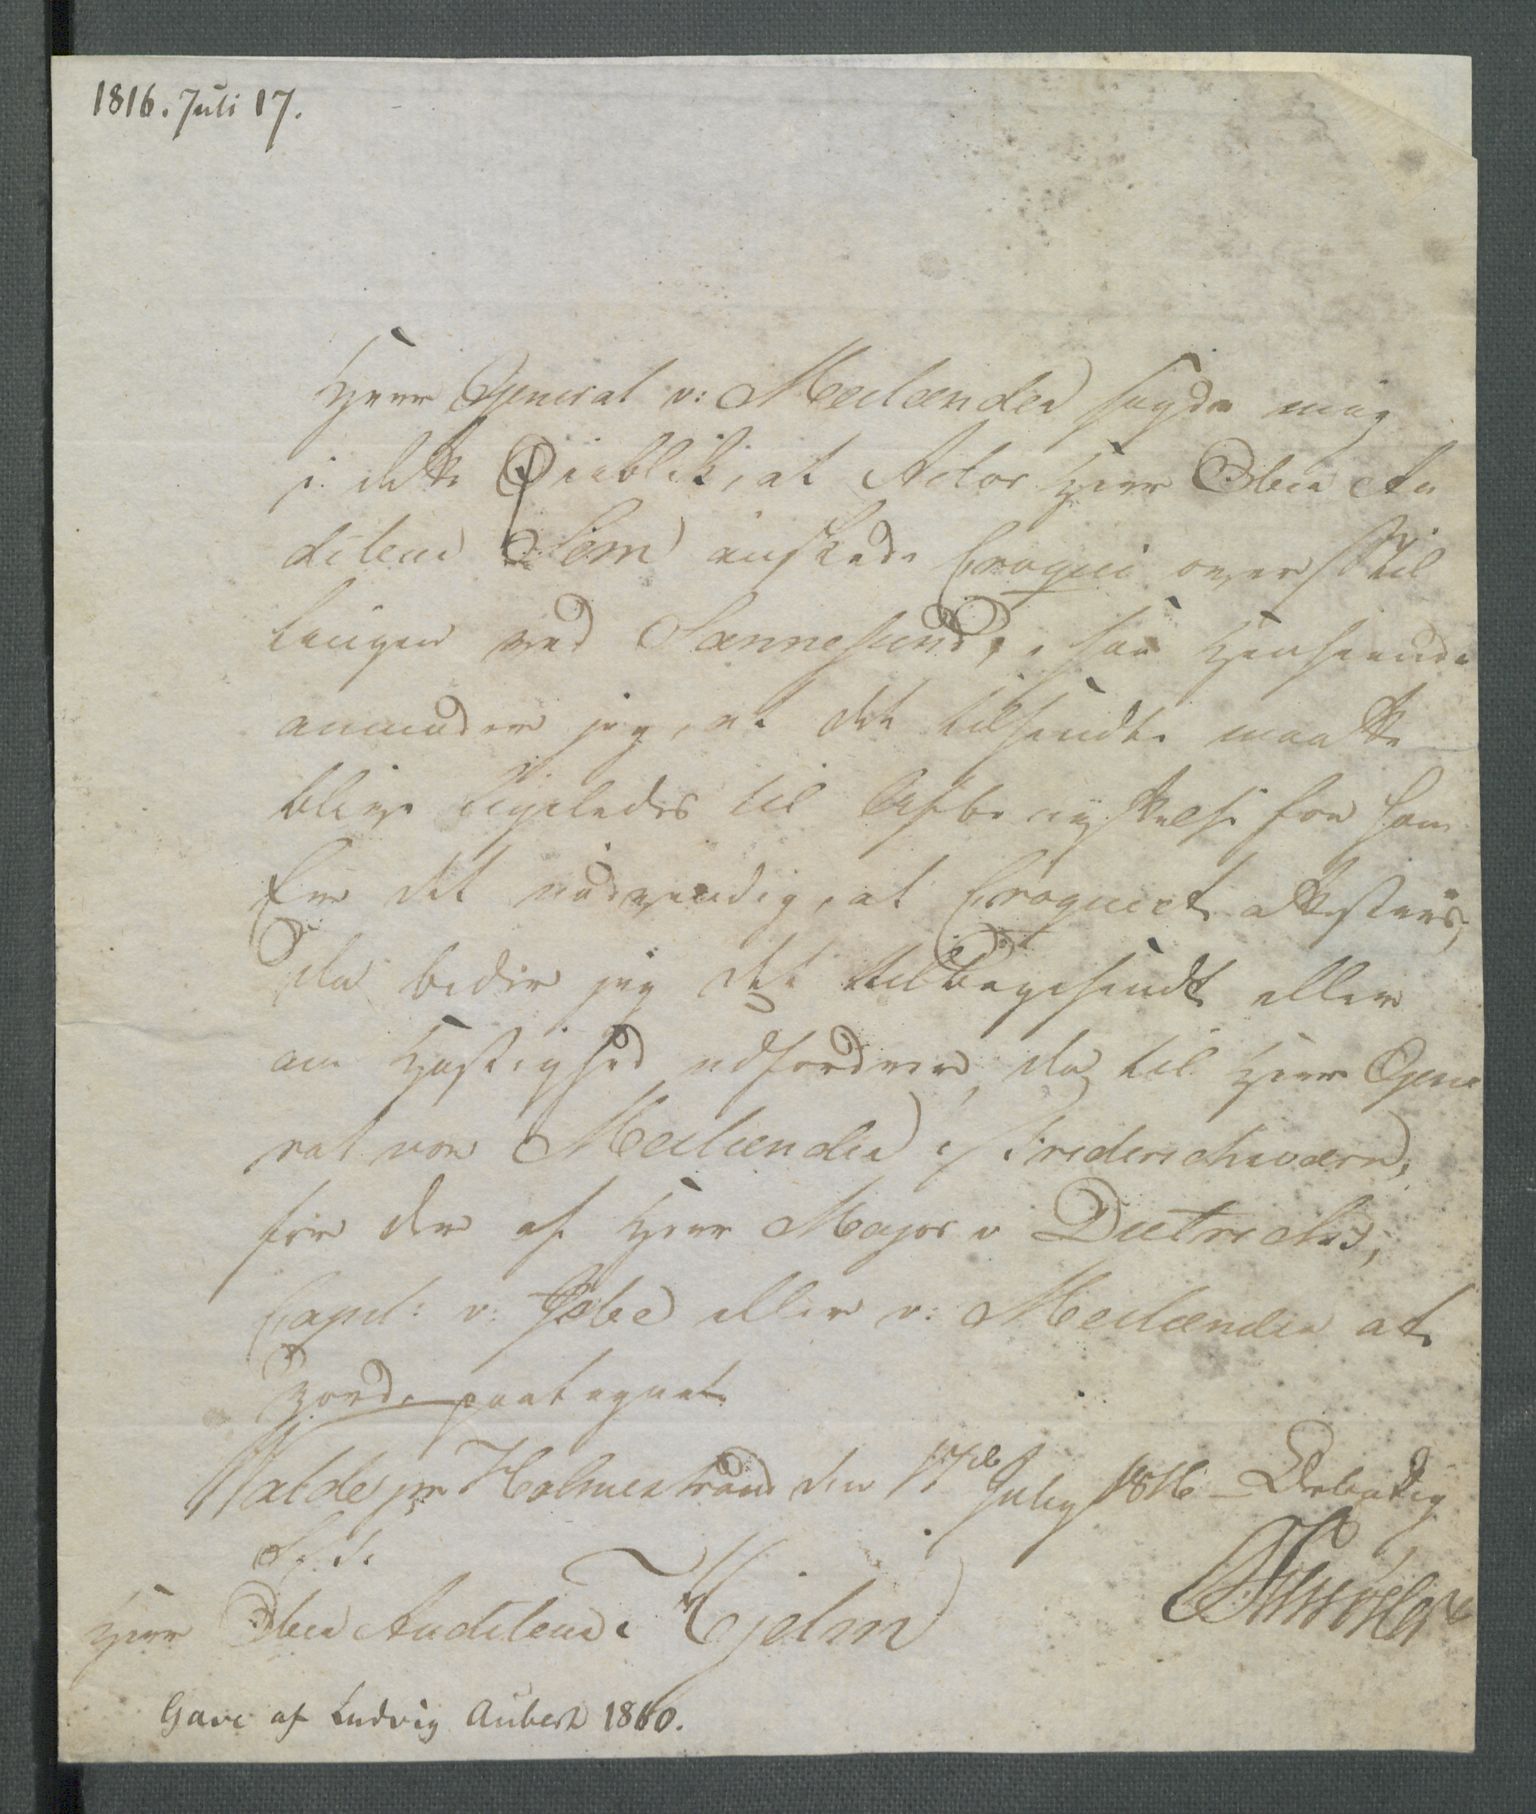 1816. Juli 17.
Herr General v: Meilænder sagde mig
i dette Øieblik, at Actor Herr Ober Au
diteur Sem ønskede Croqui over Stil
lingen ved Sannesund, saa Henseende
anmoder jeg, at det tilsendte maatte
blive ligeledes til Afbenyttelse for ham
Er det nødvendig, at Croquiet attesteres,
da beder jeg det tilbagesendt eller
om Hastighed udfordres, da til Herr Gene
ral von Meilænder i Friderichsværn,
for der af Herr Major v Dietrichs,
Capt: v: eller v: Meilænder at
vorde paategnet
Valde pr Holmestrand den 17de July 1816 Ærbødig
Herr Ober Auditeur Hjelm
Gave af Ludvig Aubert 1860.